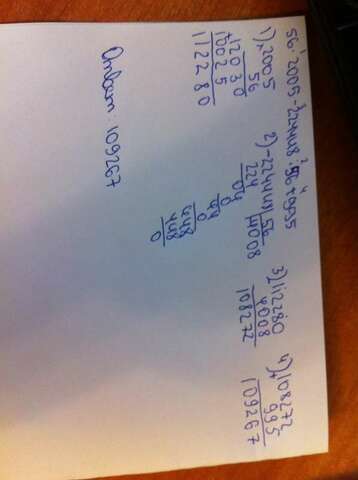 56·2005-224448:56+995
1) ×2005
56
12030
10025
112280
2) -224448|56
224 4008
04
0
44
0
448
448
0
3) -112280
4008
108272
4) +108272
995
109267
Ответ: 109267